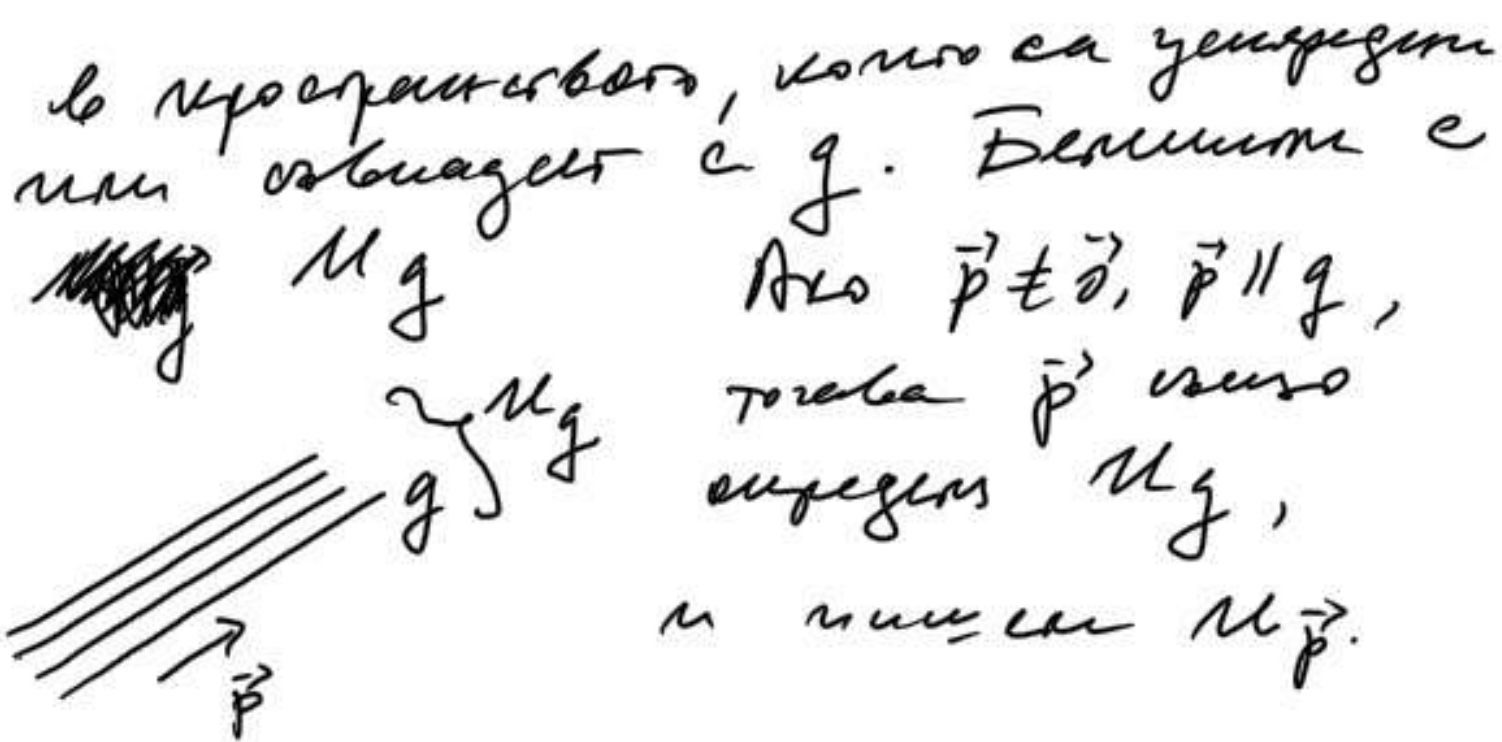 в пространството, които са успоредни
или съвпадат с g. Бележим с
M_g
Ако p⃗ ≠ o⃗, p⃗ || g,
тогава p⃗ също
определя M_g,
и пишем M_p⃗.
g } M_g
p⃗